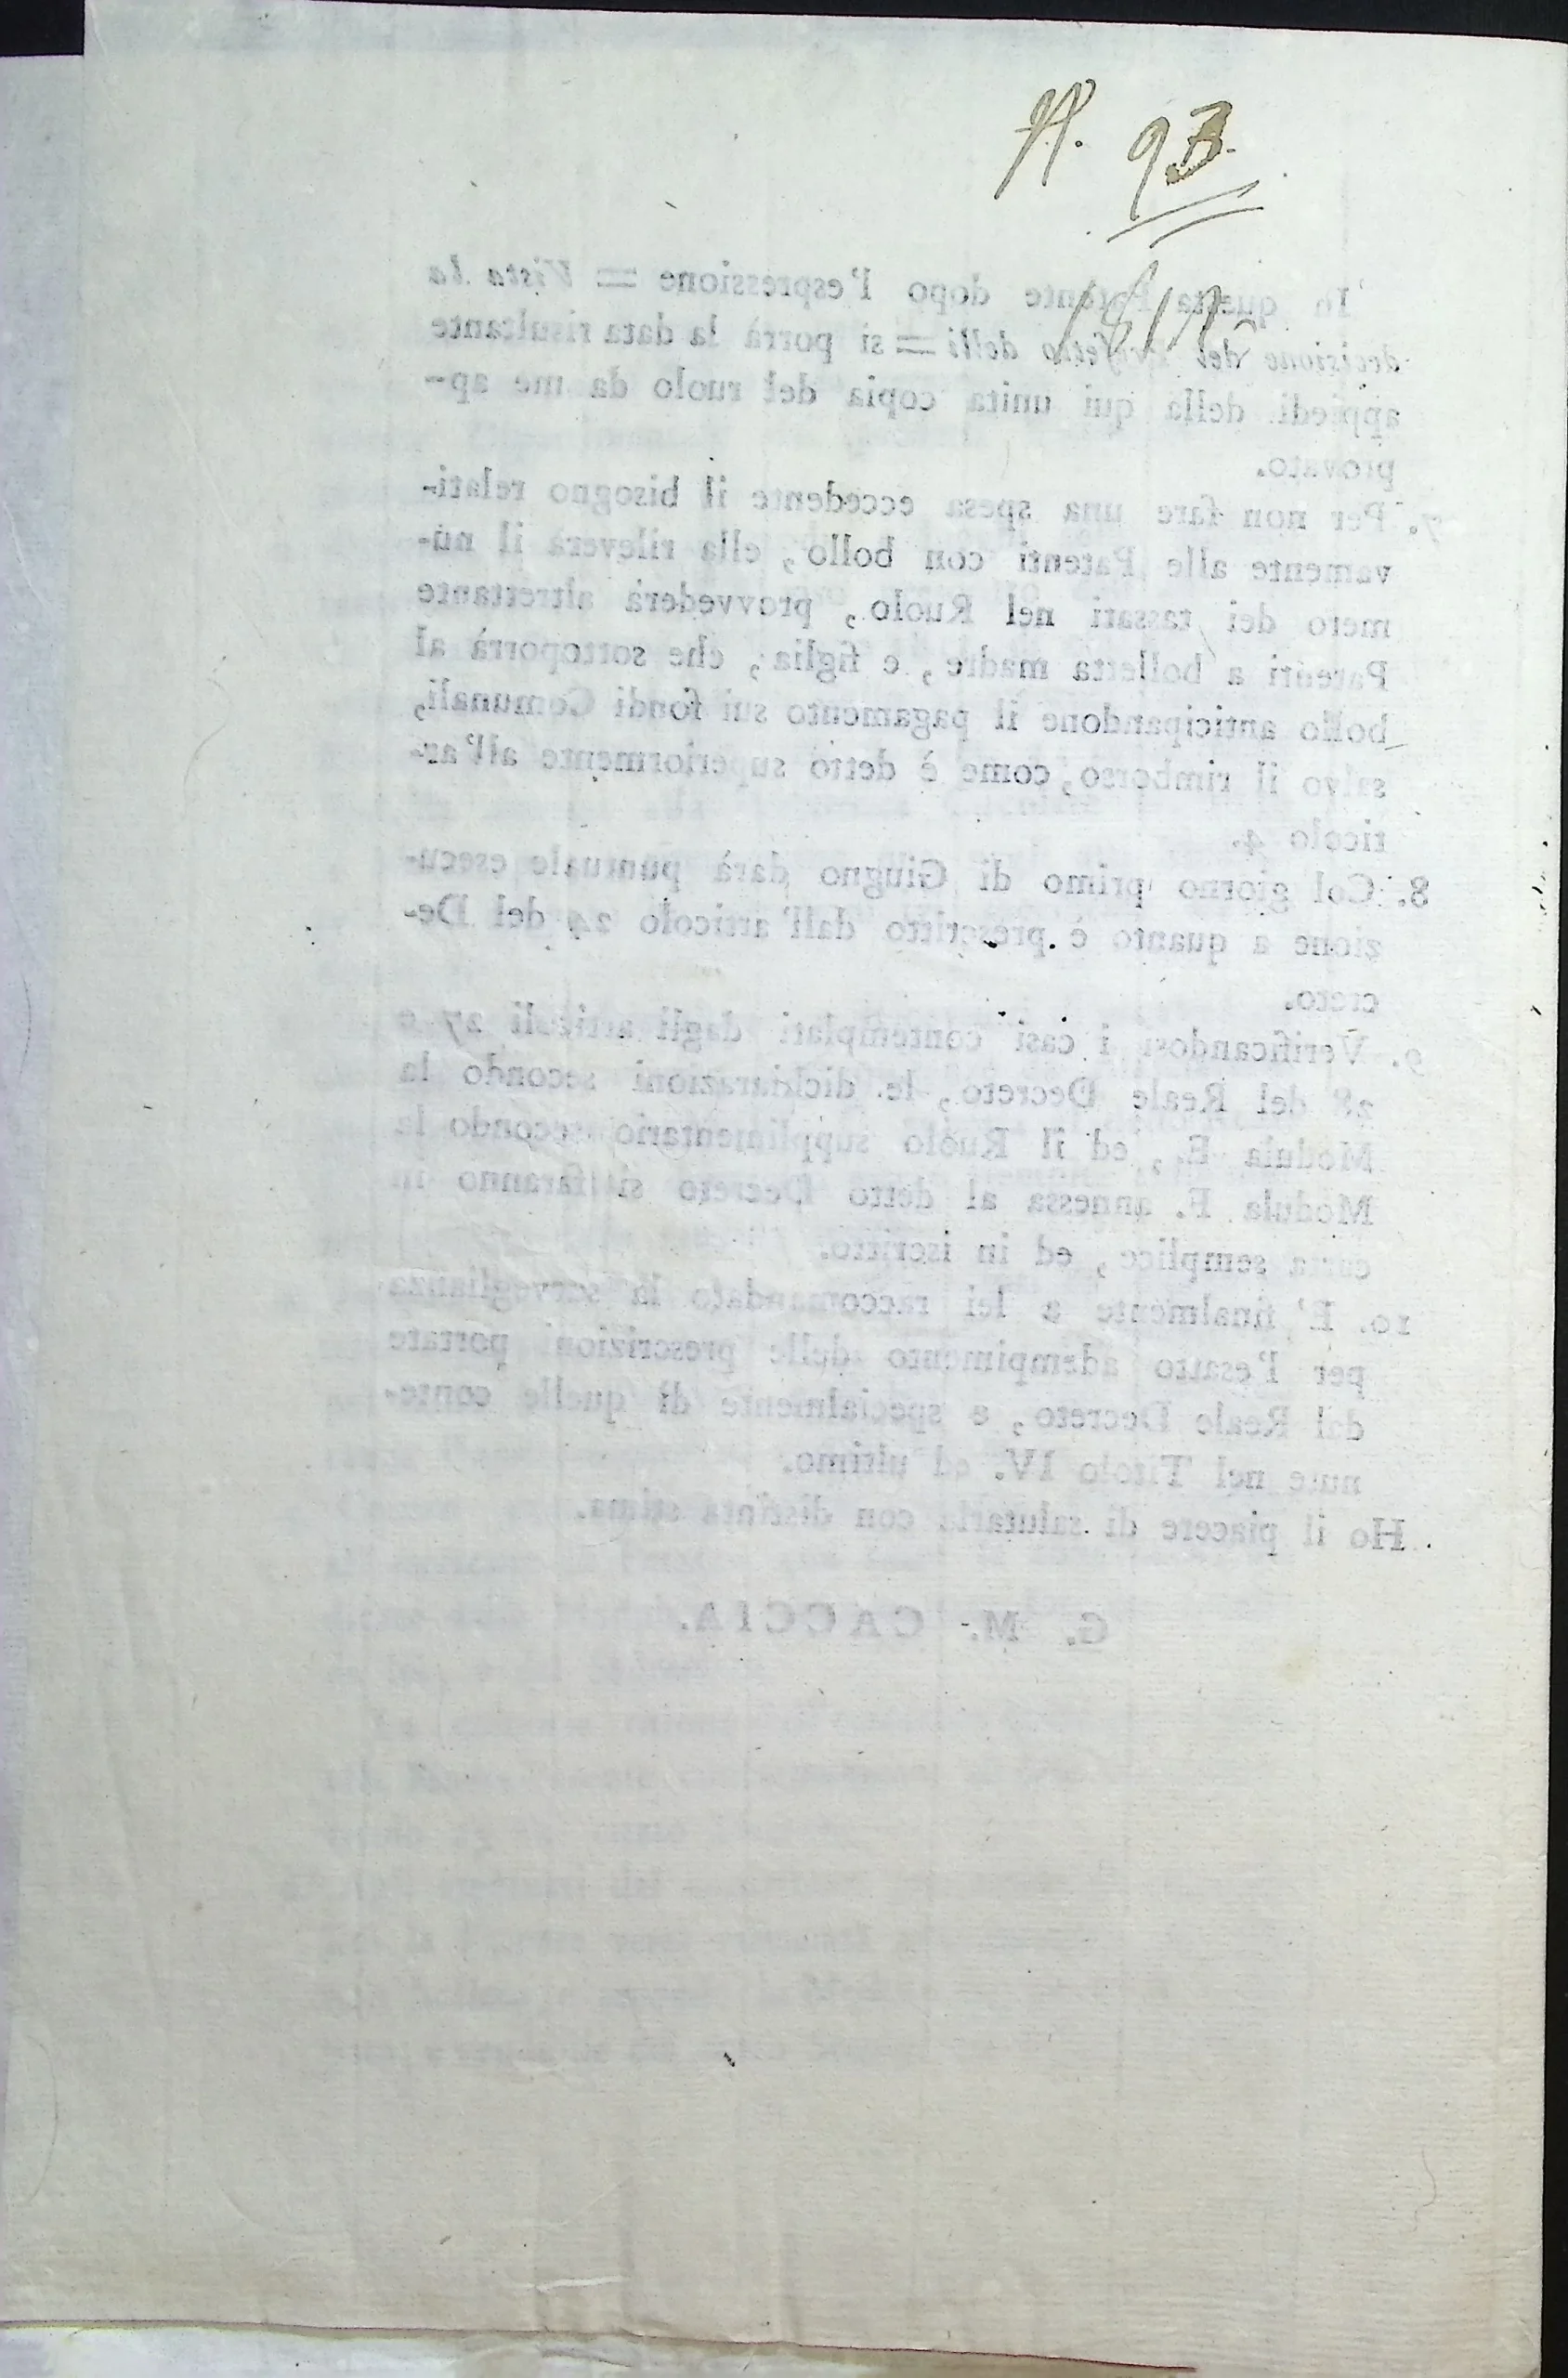 N. 93.
1811
In questa Patente dopo l'espressione = Vista la
decisione del Prefetto delli = si porrà la data risultante
appiedi della qui unita copia del ruolo da me ap-
provato.
7. Per non fare una spesa eccedente il bisogno relati-
vamente alle Patenti con bollo, ella rileverà il nu-
mero dei tassati nel Ruolo, provvederà altrettante
Patenti a bolletta madre, e figlia, che sottoporrà al
bollo anticipandone il pagamento sui fondi Comunali,
salvo il rimborso, come è detto superiormente all'ar-
ticolo 4.
8. Col giorno primo di Giugno darà puntuale esecu-
zione a quanto è prescritto dall'articolo 24 del De-
creto.
9. Verificandosi i casi contemplati dagli articoli 27 e
28 del Reale Decreto, le dichiarazioni secondo la
Modula E., ed il Ruolo supplimentario secondo la
Modula F. annessa al detto Decreto si faranno in
carta semplice, ed in iscritto.
10. E' finalmente a lei raccomandato la sorveglianza
per l'esatto adempimento delle prescrizioni portate
dal Reale Decreto, e specialmente di quelle conte-
nute nel Titolo IV. ed ultimo.
Ho il piacere di salutarla con distinta stima.
G. M. CACCIA.